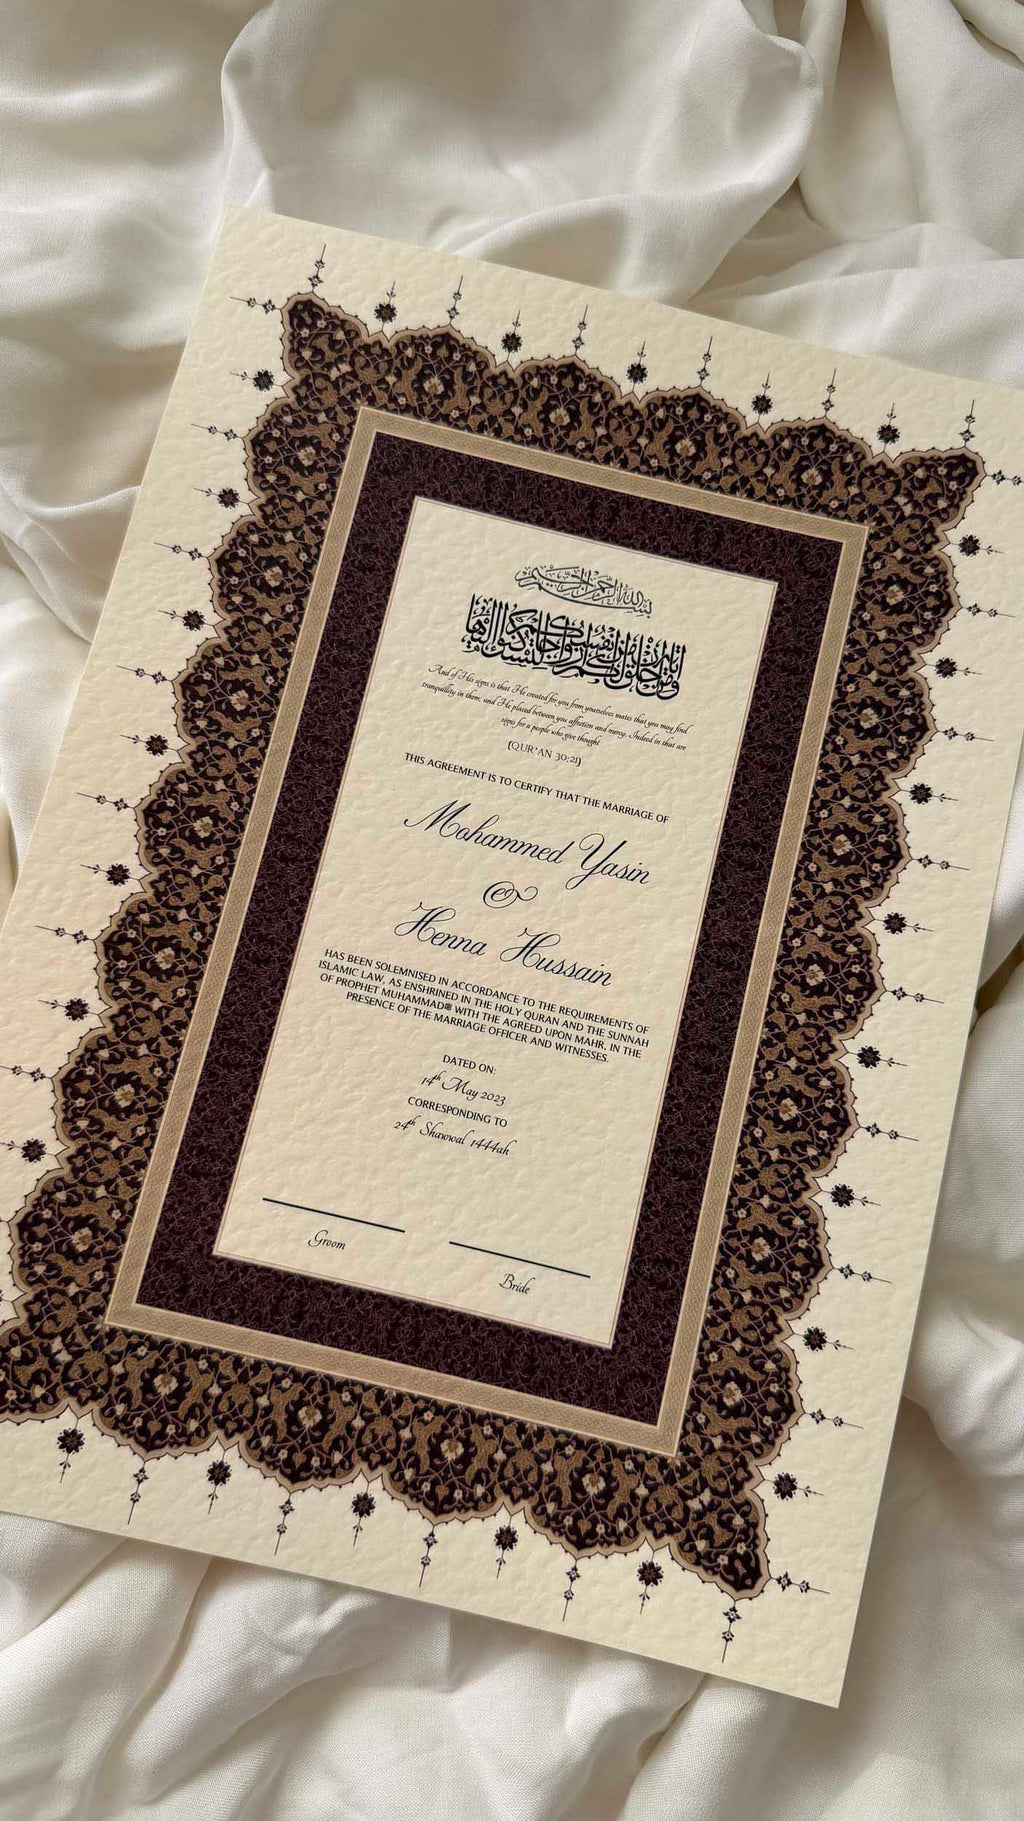 بسم الله الرحمن الرحيم
ومن آياته أن خلق لكم من أنفسكم أزواجا لتسكنوا إليها
And of His signs is that He created for you from yourselves mates that you may find
tranquillity in them, and He placed between you affection and mercy. Indeed in that are
signs for a people who give thought
(QUR'AN 30:21)
THIS AGREEMENT IS TO CERTIFY THAT THE MARRIAGE OF
Mohammed Yasin
&
Henna Hussain
HAS BEEN SOLEMNISED IN ACCORDANCE TO THE REQUIREMENTS OF
ISLAMIC LAW, AS ENSHRINED IN THE HOLY QURAN AND THE SUNNAH
OF PROPHET MUHAMMADﷺ WITH THE AGREED UPON MAHR, IN THE
PRESENCE OF THE MARRIAGE OFFICER AND WITNESSES.
DATED ON:
14th May 2023
CORRESPONDING TO
24th Shawwal 1444ah
Groom
Bride